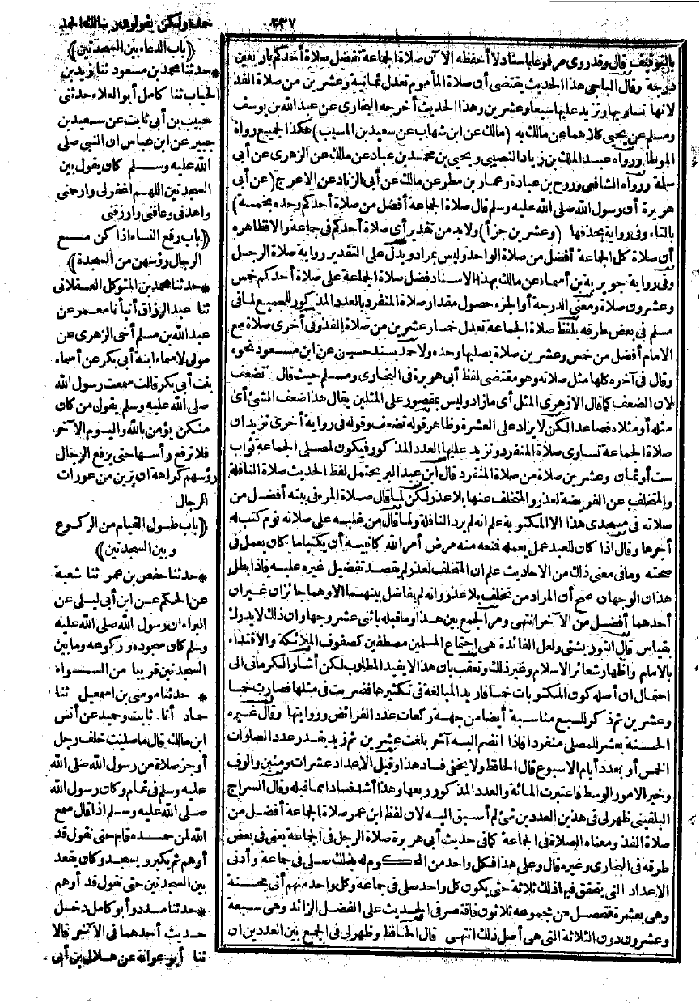 ٢٣٧
بالتوقيف قال وقد روى مرفوعا باسناد لا أحفظه الآن صلاة الجماعة تفضل صلاة أحدكم بأربعين
درجة وقال الباجي هذا الحديث يقتضى أن صلاة المأموم تعدل ثمانية وعشرين من صلاة الفذ
لانها تساويها وتزيد عليها سبعا وعشرين وهذا الحديث أخرجه البخارى عن عبد الله بن يوسف
ومسلم عن يحيى كلاهما عن مالك به (مالك عن ابن شهاب عن سعيد بن المسيب) هكذا لجميع رواة
الموطا ورواه عبد الملك بن زياد النصيبى ويحيى بن محمد بن عباد عن مالك عن الزهرى عن أبى
سلمة ورواه الشافعى وروح بن عبادة وعمار بن مطر عن مالك عن أبى الزناد عن الاعرج (عن أبى
هريرة أن رسول الله صلى الله عليه وسلم قال صلاة الجماعة أفضل من صلاة أحدكم وحده بخمسة)
بالتاء وفى رواية بحذفها (وعشرين جزأ) ولابد من تقدير أى صلاة أحدكم فى جماعة والا فظاهره
أن صلاة كل الجماعة أفضل من صلاة الواحد وليس بمراد ويدل على التقدير رواية صلاة الرجل
وفى رواية جويرية بن أسماء عن مالك بهذا الاسناد فضل صلاة الجماعة على صلاة أحدكم خمس
وعشرون صلاة ومعنى الدرجة أو الجزء حصول مقدار صلاة المنفرد بالعدد المذكور للجمع لما فى
مسلم فى بعض طرقه بلفظ صلاة الجماعة تعدل خمسا وعشرين من صلاة الفذ وفى أخرى صلاة مع
الامام أفضل من خمس وعشرين صلاة يصليها وحده ولاحمد بسند حسن عن ابن مسعود نحوه
وقال فى آخره كلها مثل صلاته وهو مقتضى لفظ أبى هريرة فى البخارى ومسلم حيث قال تضعف
لان الضعف كما قال الازهرى المثل أى ما زاد وليس بمقصور على المثلين يقال هذا ضعف الشئ أى
مثله أو مثلاه فصاعدا لكن لا يزاد على العشرة وظاهر قوله تضعف وقوله فى رواية أخرى تزيد ان
صلاة الجماعة تساوى صلاة المنفرد وتزيد عليها العدد المذكور فيكون لمصلى الجماعة ثواب
ست أو ثمان وعشرين صلاة من صلاة المنفرد قال ابن عبد البر يحتمل لفظ الحديث صلاة النافلة
والمتخلف عن الفريضة لعذر والمتخلف عنها بلا عذر ولكن لما قال صلاة المرء فى بيته أفضل من
صلاته فى مسجدى هذا الا المكتوبة علم انه لم يرد النافلة ولما قال من غلبه على صلاته نوم كتب له
أجرها وقال اذا كان للعبد عمل يعمله فمنعه منه مرض أمر الله كاتبيه أن يكتبا ما كان يعمل فى
صحته وما فى معنى ذلك من الاحاديث علم ان المتخلف لعذر لم يقصد تفضيل غيره عليه فاذا بطل
هذان الوجهان صح أن المراد من تخلف بلا عذر وانه لم يفاضل بينهما الا وهما جائزان غير ان
أحدهما أفضل من الآخر انتهى ومر الجمع بين هذا وما قبله باثنى عشر وجها وان ذلك لا يدرك
بقياس قال التوربشتى ولعل الفائدة هى اجتماع المسلمين مصطفين كصفوف الملائكة والاقتداء
بالامام واظهار شعائر الاسلام وغير ذلك وتعقب بان هذا لا يفيد المطلوب لكن أشار الكرمانى الى
احتمال ان أصله كون المكتوبات خمسا فاريد المبالغة فى تكثيرها فضربت فى مثلها فصارت خمسا
وعشرين ثم ذكر للسبع مناسبة أيضا من جهة ركعات عدد الفرائض ورواتبها وقال غيره
الحسنة بعشر للمصلى منفردا فاذا انضم اليه آخر بلغت عشرين ثم زيد بقدر عدد الصلوات
الخمس أو بعدد أيام الاسبوع قال الحافظ ولا يخفى فساد هذا وقيل الاعداد عشرات ومئين وألوف
وخير الامور الوسط فاعتبرت المائة والعدد المذكور ربعها وهذا أشد فسادا مما قبله وقال السراج
البلقينى ظهر لى فى هذين العددين شئ لم أسبق اليه لان لفظ ابن عمر صلاة الجماعة أفضل من
صلاة الفذ ومعناه الصلاة فى الجماعة كما فى حديث أبى هريرة صلاة الرجل فى الجماعة يعنى فى بعض
طرقه فى البخارى وغيره قال وعلى هذا فكل واحد من المحكوم له بذلك صلى فى جماعة وأدنى
الاعداد التى يتحقق فيها ذلك ثلاثة حتى يكون كل واحد صلى فى جماعة وكل واحد منهم أتى بحسنة
وهى بعشرة فتحصل من مجموعه ثلاثون فاقتصر فى الحديث على الفضل الزائد وهى سبعة
وعشرون دون الثلاثة التى هى أصل ذلك انتهى قال الحافظ وظهر لى فى الجمع بين العددين ان
حمده ولكن يقول اللهم ربنا لك الحمد
(باب الدعاء بين السجدتين)
*حدثنا محمد بن مسعود ثنا زيد بن
الحباب ثنا كامل أبو العلاء حدثنى
حبيب بن أبى ثابت عن سعيد بن
جبير عن ابن عباس ان النبى صلى
الله عليه وسلم كان يقول بين
السجدتين اللهم اغفر لى وارحمنى
واهدنى وعافنى وارزقنى
(باب رفع النساء اذا كن مع
الرجال رؤسهن من السجدة)
*حدثنا محمد بن المتوكل العسقلانى
ثنا عبد الرزاق أنبأنا معمر عن
عبد الله بن مسلم أخى الزهرى عن
مولى لاسماء ابنة أبى بكر عن أسماء
بنت أبى بكر قالت سمعت رسول الله
صلى الله عليه وسلم يقول من كان
منكن يؤمن بالله واليوم الآخر
فلا ترفع رأسها حتى يرفع الرجال
رؤسهم كراهة ان يرين من عورات
الرجال
(باب طول القيام من الركوع
وبين السجدتين)
*حدثنا حفص بن عمر ثنا شعبة
عن الحكم عن ابن أبى ليلى عن
البراء ان رسول الله صلى الله عليه
وسلم كان سجوده وركوعه وما بين
السجدتين قريبا من السواء
* حدثنا موسى بن اسمعيل ثنا
حماد أنا ثابت وحميد عن أنس
ابن مالك قال ما صليت خلف رجل
أوجز صلاة من رسول الله صلى الله
عليه وسلم فى تمام وكان رسول الله
صلى الله عليه وسلم اذا قال سمع
الله لمن حمده قام حتى نقول قد
أوهم ثم يكبر ويسجد وكان يقعد
بين السجدتين حتى نقول قد أوهم
*حدثنا مسدد وأبو كامل دخل
حديث أحدهما فى الآخر قالا
ثنا أبو عوانة عن هلال بن أبى